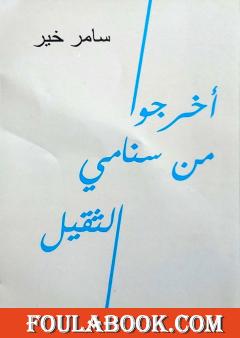 سامر خير
أخرجوا
من سنامي
الثقيل
FOULABOOK.COM